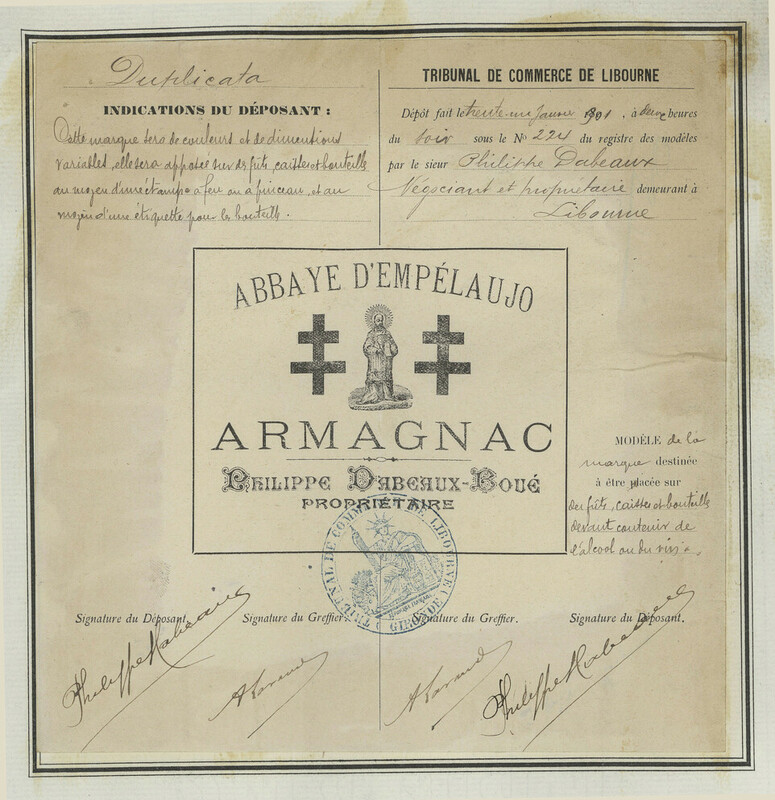 Duplicata
INDICATIONS DU DÉPOSANT :
Cette marque sera de couleurs et de dimentions
variables, elle sera apposée sur des fûts, caisses et bouteilles
au moyen d'une étampe à feu ou à pinceau, et au
moyen d'une étiquette pour les bouteilles.
TRIBUNAL DE COMMERCE DE LIBOURNE
Dépôt fait le trente-un Janvier 1901, à deux heures
du soir sous le No 224 du registre des modèles
par le sieur Philippe Dabeaux
Négociant et propriétaire demeurant à
Libourne
ABBAYE D'EMPÉLAUJO
ARMAGNAC
PHILIPPE DABEAUX-BOUÉ
PROPRIÉTAIRE
MODÈLE de la
marque destinée
à être placée sur
des fûts, caisses et bouteilles
devant contenir de
l'alcool ou du vins.
TRIBUNAL DE COMMERCE DE LIBOURNE (GIRONDE)
Signature du Déposant
Signature du Greffier.
Signature du Greffier.
Signature du Déposant.
Philippe Dabeaux
Philippe Dabeaux